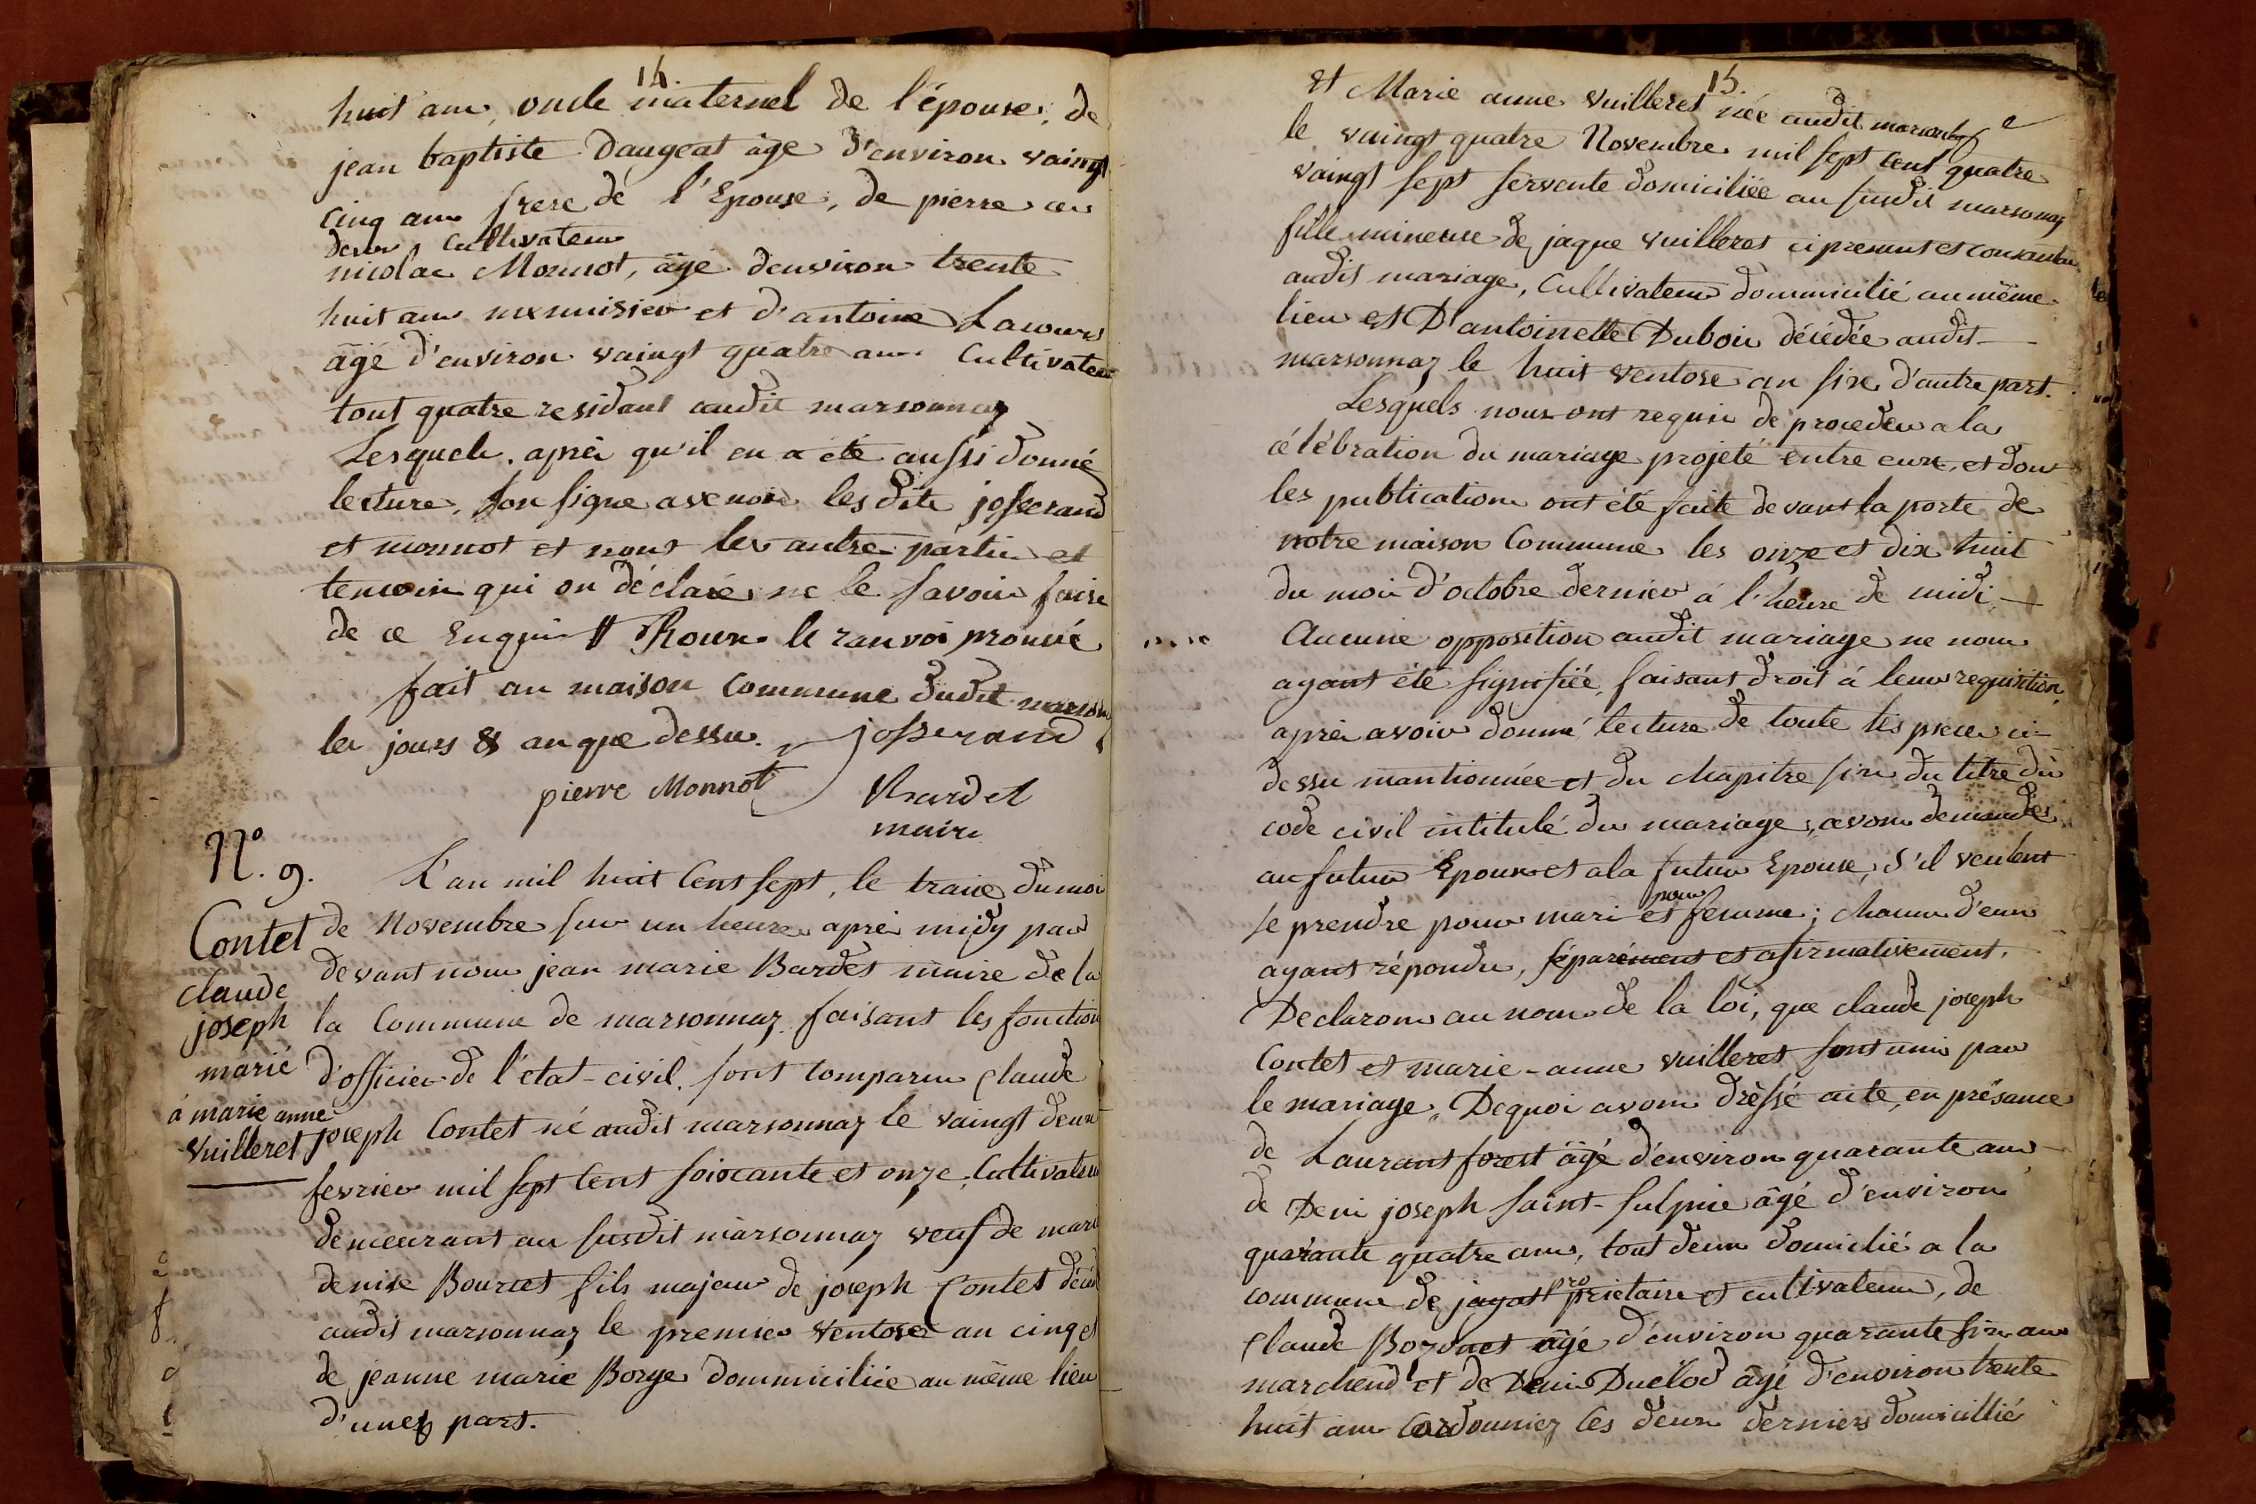 14.
huit ans, oncle maternel de l'épouse, de
jean baptiste Daugeat âge d'environ vaingt
cinq ans frere de l'Epouse, de pierre ces
deux cultivateurs
nicolas Monnot, âge d'environ trente
huit ans menuisier et d'antoine Lacour
âgé d'environ vaingt quatre ans Cultivateur
tout quatre residant audit marsonnaz
Lesquels. après qu'il en a été aussi donné
lecture, son signe avenous lesdits josserand
et monnot et nous les autre partie et
temoin qui on déclaré ne le savoir faire
de ce Enquis # Roux le ranvoi prouvé
fait au maison commune dudit marson
les jours & an que dessu.
josserand
pierre Monnot
Bardet
maire
N°. 9.
Contet
claude
joseph
marié
á marie anne
Vuilleret
L'an mil huit Cent sept, le traize du moi
de Novembre sur un heure après midy par
devant nous jean marie Bardet maire de la
la Commune de marsonnaz faisant les fonction
d'officier de l'etat-civil. sont comparu Claude
joseph Contet né audit marsonnaz le vaingt deux
fevrier mil sept Cent soixante et onze, Cultivateur
demeurant au susdit marsonnaz veuf de mari
denise Bourcet fils majeur de joseph Contet décéd
audit marsonnaz le premier Ventose an cinq et
de jeanne marie Borge dommiciliée au même lieu
d'une part.
15.
et Marie anne Vuilleret née audit marsonnaz
le vaingt quatre Novembre mil sept cent quatre
vaingt sept servente domiciliée au susdit marsonnaz
fille mineure de jaque Vuilleret ci present et consantan
audit mariage, Cultivateur dommicilié au même
lieu et D'antoinette Duboi décédée audit
marsonnaz le huit ventose an six d'autre part.
Lesquels nous ont requis de proceder a la
célébration du mariage projeté entre eux, et dont
les publication ont été faite devant la porte de
notre maison Commune les onze et dix huit
du moi d'octobre dernier á l'heure de midi
Aucune opposition audit mariage ne nous
ayant été signifiée, faisant droit á leur requisition,
après avoir donné lecture de toute les piece ci
dessu mantionnée et du chapitre six du titre du
code civil intitulé du mariage, avons demandé
au futur Epoux et a la futur Epouse, s'il veulent
se prendre pour mari et pour femme; chacun d'eux
ayant répondu, séparément et afirmativement.
Declarons au nom de la loi, que claude joseph
Contet et marie-anne Vuilleret sont uni par
le mariage. De quoi avons drèssé acte, en présance
de Laurant forest âgé d'environ quarante ans
de Deni joseph saint-sulpice âgé d'environ
quarante quatre ans, tout deux domicilié a la
commune de jayat proprietaire et cultivateur, de
Claude Bozonet âgé d'environ quarante six ans
marchend et de Deni Duclod âgé d'environ trente
huit ans Cordonniez les deux derniers domicillié